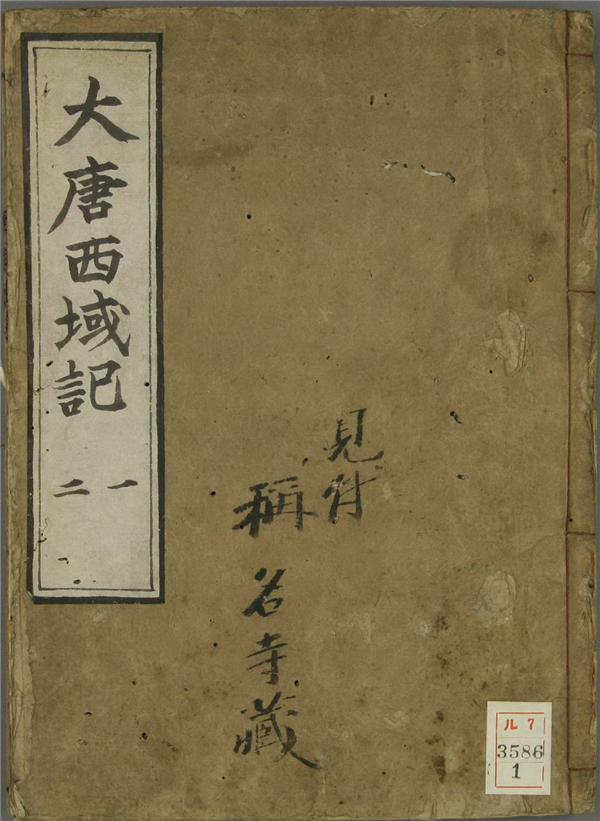 大唐西域記
一
二
見付
稱名寺藏
ル7
3586
1